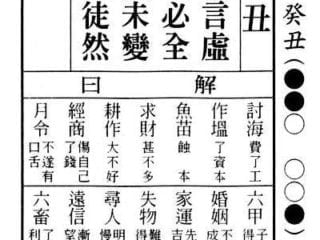 癸丑(●●○ ○○●)
丑
言虛
必全
未變
徒然
解曰
討海 費了工
作塭 了資本
魚苗 蝕本
求財 甚不多
耕作 大不好
經商 傷自己了錢
月令 不遂有口舌
六甲
婚姻
家運
失物
尋人
遠信
六畜